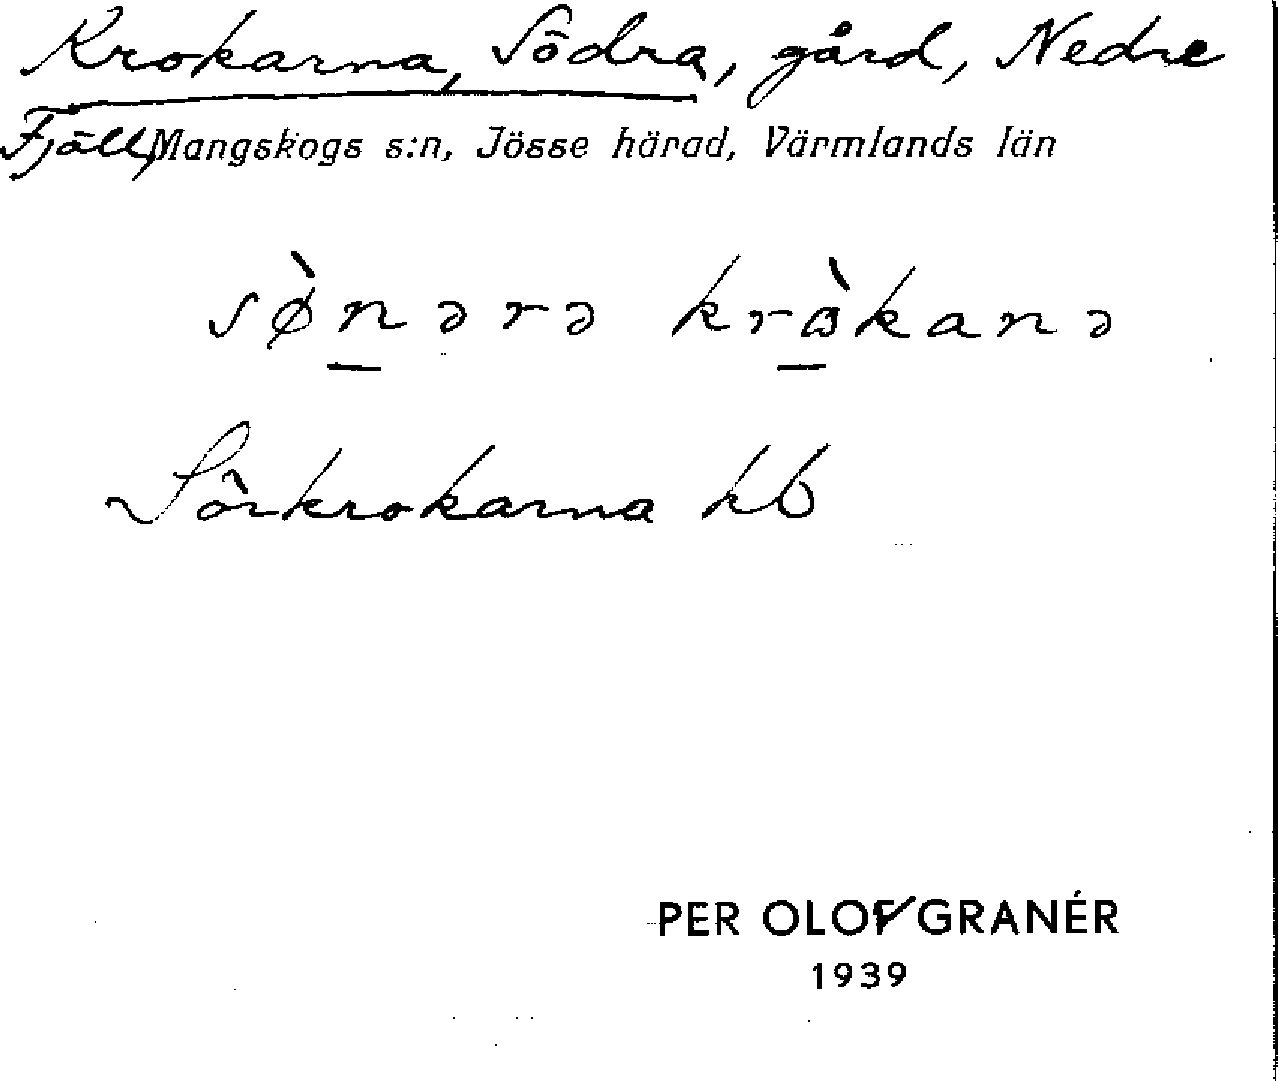 Krokarna, Södra, gård, Nedre
Fjäll, Mangskogs s:n, Jösse härad, Värmlands län
sø̀nərə krɷ̀kanə
Sörkrokarna hb
PER OLOF GRANÉR
1939